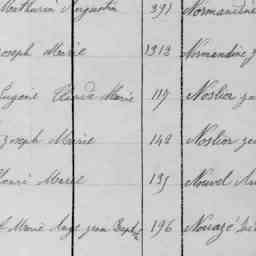 Mathurin Augustin 391 Normandine
Joseph Marie 1313 Normandine J
Eugène Marie 119 Noslier
Joseph Marie 142 Noslier
Henri Marie 135 Nouvel
Marie Ange Jean Bapt 196 Nouazé